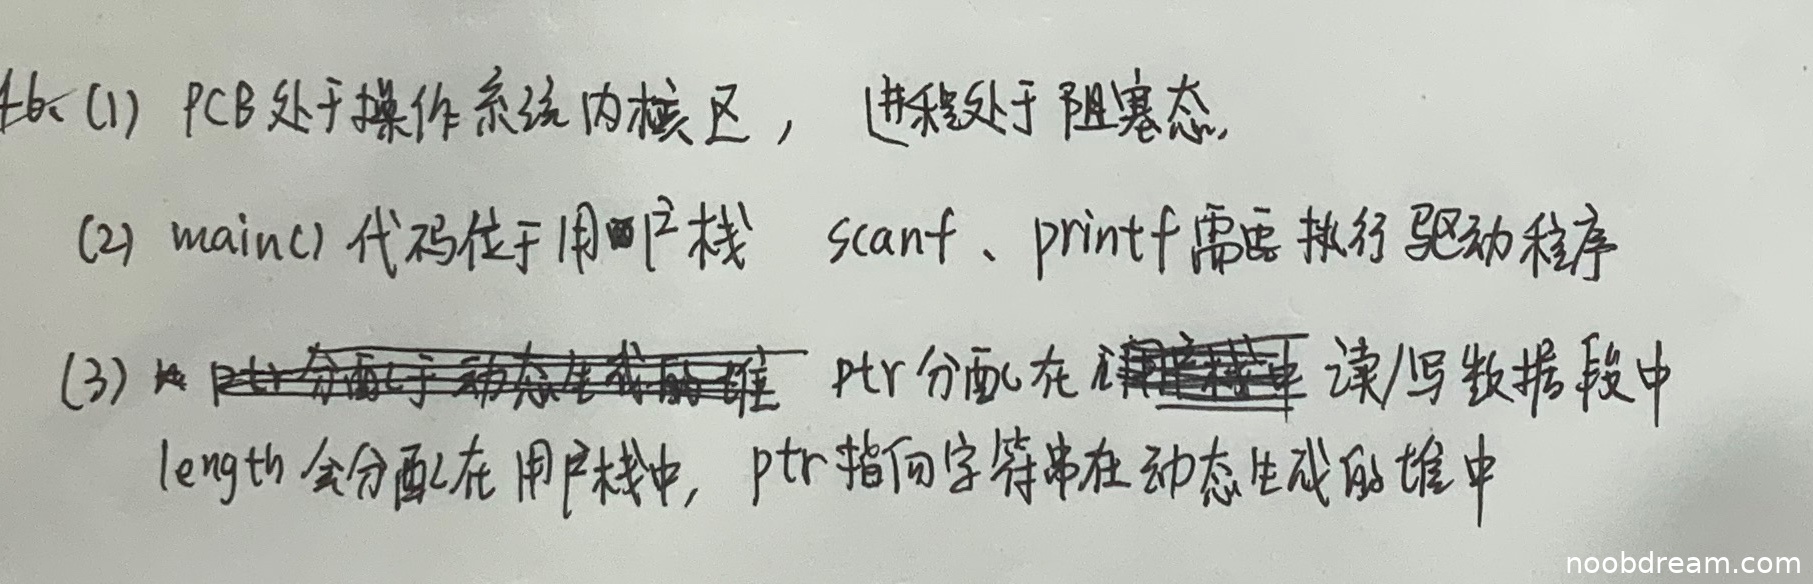 46、(1) PCB处于操作系统内核区， 进程处于阻塞态.
(2) main() 代码位于用户栈 scanf、printf需要执行驱动程序
(3) ptr分配在 读/写数据段中
length会分配在用户栈中, ptr指向字符串在动态生成的堆中
noobdream.com